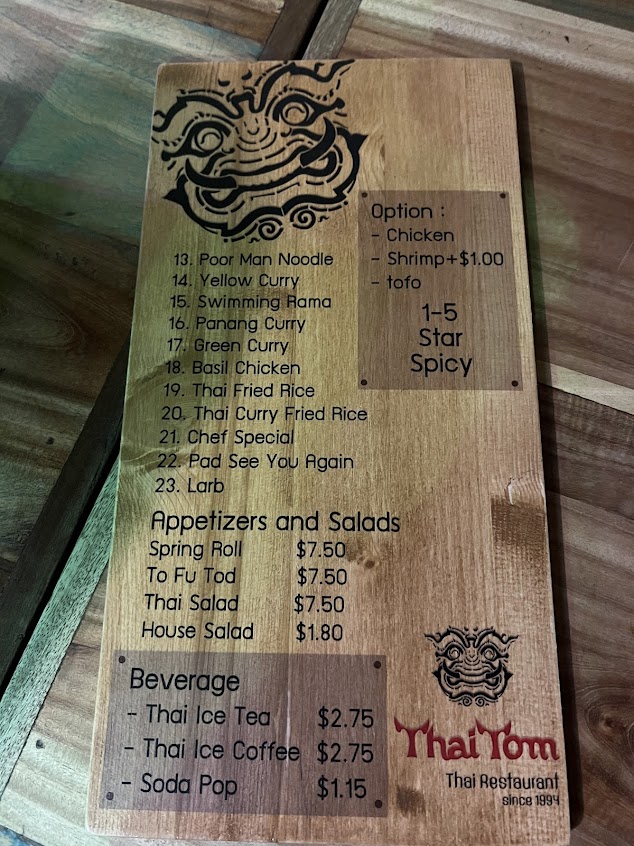 Option :
- Chicken
- Shrimp+$1.00
- tofo
1-5
Star
Spicy
13. Poor Man Noodle
14. Yellow Curry
15. Swimming Rama
16. Panang Curry
17. Green Curry
18. Basil Chicken
19. Thai Fried Rice
20. Thai Curry Fried Rice
21. Chef Special
22. Pad See You Again
23. Larb
Appetizers and Salads
Spring Roll $7.50
To Fu Tod $7.50
Thai Salad $7.50
House Salad $1.80
Beverage
- Thai Ice Tea $2.75
- Thai Ice Coffee $2.75
- Soda Pop $1.15
Thai Tom
Thai Restaurant
since 1994